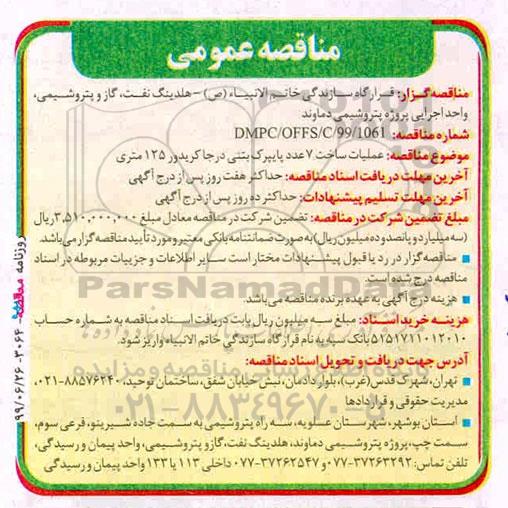 مناقصه عمومی
مناقصه گزار: قرارگاه سازندگی خاتم الانبیاء (ص) - هلدینگ نفت، گاز و پتروشیمی،
واحد اجرایی پروژه پتروشیمی دماوند
شماره مناقصه: DMPC/OFFS/C/99/1061
موضوع مناقصه: عملیات ساخت ۷ عدد پایپرک بتنی درجا کریدور ۱۲۵ متری
آخرین مهلت دریافت اسناد مناقصه: حداکثر هفت روز پس از درج آگهی
آخرین مهلت تسلیم پیشنهادات: حداکثر ده روز پس از درج آگهی
مبلغ تضمین شرکت در مناقصه: تضمین شرکت در مناقصه معادل مبلغ ۳,۵۱۰,۰۰۰,۰۰۰ ریال
(سه میلیارد و پانصد و ده میلیون ریال) به صورت ضمانتنامه بانکی معتبر و مورد تأیید مناقصه گزار می باشد.
▪ مناقصه گزار در رد یا قبول پیشنهادات مختار است سایر اطلاعات و جزییات مربوطه در اسناد
مناقصه درج شده است.
▪ هزینه درج آگهی به عهده برنده مناقصه می باشد.
هزینه خرید اسناد: مبلغ سه میلیون ریال بابت دریافت اسناد مناقصه به شماره حساب
۵۲۵۱۷۱۱۰۱۲۰۱۰ بانک سپه به نام قرارگاه سازندگی خاتم الانبیاء واریز شود.
آدرس جهت دریافت و تحویل اسناد مناقصه:
▪ تهران، شهرک قدس (غرب)، بلوار دادمان، نبش خیابان شفق، ساختمان توحید، ۸۸۵۷۶۲۴۰-۰۲۱،
مدیریت حقوقی و قراردادها
▪ استان بوشهر، شهرستان عسلویه، سه راه پتروشیمی به سمت جاده شیرینو، فرعی سوم،
سمت چپ، پروژه پتروشیمی دماوند، هلدینگ نفت، گاز و پتروشیمی، واحد پیمان و رسیدگی،
تلفن تماس: ۳۷۲۶۳۲۹۲-۰۷۷ و ۳۷۲۶۲۵۴۷-۰۷۷ داخلی ۱۱۳ یا ۱۳۳ واحد پیمان و رسیدگی
روزنامه مناقصه ۳۰۶۴ - ۹۹/۰۶/۲۶
ParsNamadData
پایگاه اطلاع رسانی مناقصه و مزایده
۰۲۱-۸۸۳۴۹۶۷۰-۵